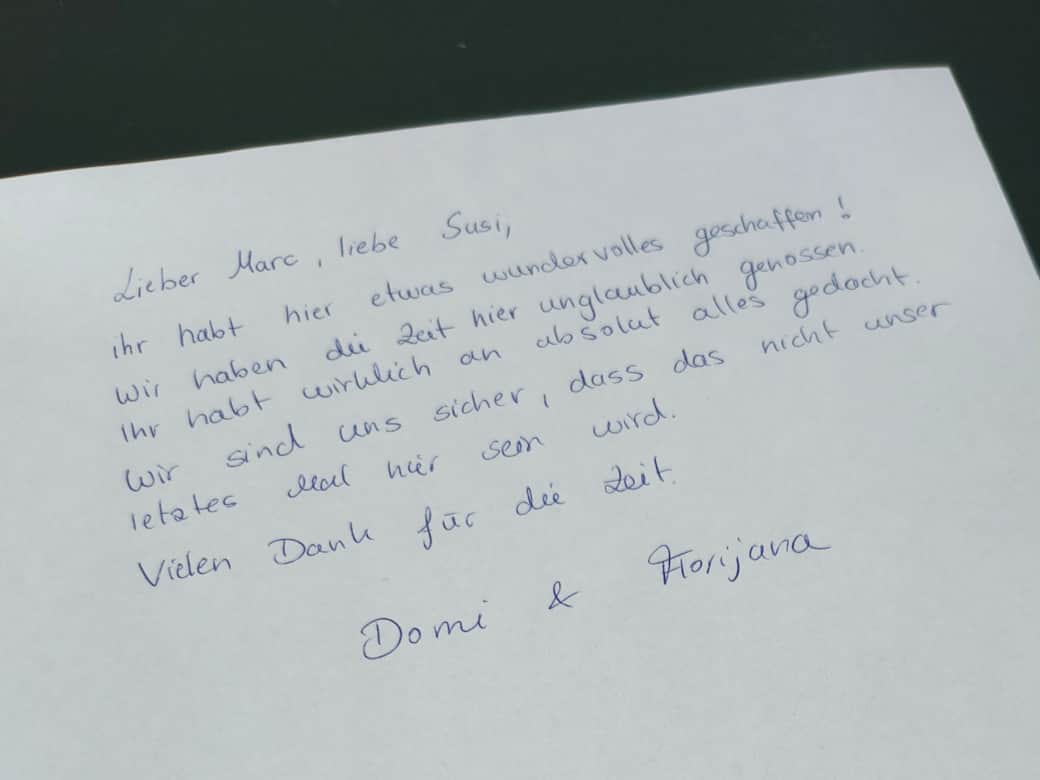 Lieber Marc, liebe Susi,
ihr habt hier etwas wundervolles geschaffen!
Wir haben die Zeit hier unglaublich genossen.
Ihr habt wirklich an absolut alles gedacht.
Wir sind uns sicher, dass das nicht unser
letztes Mal hier sein wird.
Vielen Dank für die Zeit.
Domi & Florijana